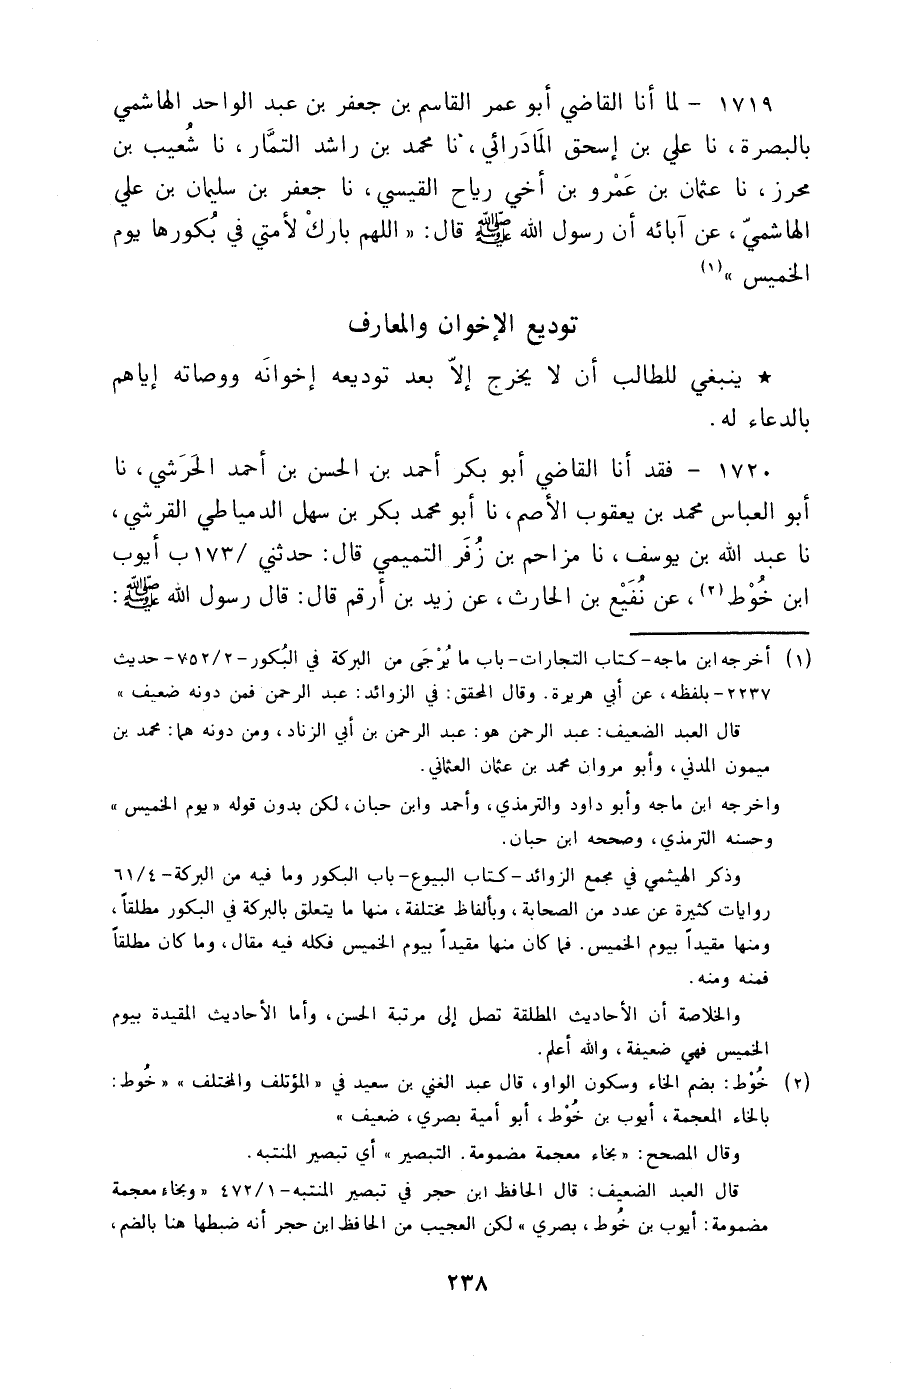 ١٧١٩ – لما أنا القاضي أبو عمر القاسم بن جعفر بن عبد الواحد الهاشمي
بالبصرة، نا علي بن إسحق المَادَرائي، نا محمد بن راشد التمَّار، نا شُعيب بن
محرز، نا عثمان بن عَمْرو بن أخي رياح القيسي، نا جعفر بن سليمان بن علي
الهاشميّ، عن آبائه أن رسول الله ﷺ قال: « اللهم باركْ لأمتي في بُكورها يوم
الخميس »(١)
توديع الإخوان والمعارف
★ ينبغي للطالب أن لا يخرج إلاّ بعد توديعه إخوانَه ووصاته إياهم
بالدعاء له.
١٧٢٠ – فقد أنا القاضي أبو بكر أحمد بن الحسن بن أحمد الحَرَشي، نا
أبو العباس محمد بن يعقوب الأصم، نا أبو محمد بكر بن سهل الدمياطي القرشي،
نا عبد الله بن يوسف، نا مزاحم بن زُفَر التميمي قال: حدثني /١٧٣ب أيوب
ابن خُوْط(٢)، عن نُفَيْع بن الحارث، عن زيد بن أرقم قال: قال رسول الله ﷺ:
(١) أخرجه ابن ماجه–كتاب التجارات–باب ما يُرْجَى من البركة في البُكور–٧٥٢/٢–حديث
٢٢٣٧–بلفظه، عن أبي هريرة. وقال المحقق: في الزوائد: عبد الرحمن فمن دونه ضعيف »
قال العبد الضعيف: عبد الرحمن هو: عبد الرحمن بن أبي الزناد، ومن دونه هما: محمد بن
ميمون المدني، وأبو مروان محمد بن عثمان العثماني.
واخرجه ابن ماجه وأبو داود والترمذي، وأحمد وابن حبان، لكن بدون قوله « يوم الخميس »
وحسنه الترمذي، وصححه ابن حبان.
وذكر الهيثمي في مجمع الزوائد–كتاب البيوع–باب البكور وما فيه من البركة–٦١/٤
روايات كثيرة عن عدد من الصحابة، وبألفاظ مختلفة، منها ما يتعلق بالبركة في البكور مطلقاً،
ومنها مقيداً بيوم الخميس. فما كان منها مقيداً بيوم الخميس فكله فيه مقال، وما كان مطلقاً
فمنه ومنه.
والخلاصة أن الأحاديث المطلقة تصل إلى مرتبة الحسن، وأما الأحاديث المقيدة بيوم
الخميس فهي ضعيفة، والله أعلم.
(٢) خُوْط: بضم الخاء وسكون الواو، قال عبد الغني بن سعيد في « المؤتلف والمختلف » « خُوط:
بالخاء المعجمة، أيوب بن خُوْط، أبو أمية بصري، ضعيف »
وقال المصحح: « بخاء معجمة مضمومة. التبصير » أي تبصير المنتبه.
قال العبد الضعيف: قال الحافظ ابن حجر في تبصير المنتبه–٤٧٢/١ « وبخاء معجمة
مضمومة: أيوب بن خُوط، بصري » لكن العجيب من الحافظ ابن حجر أنه ضبطها هنا بالضم،
٢٣٨